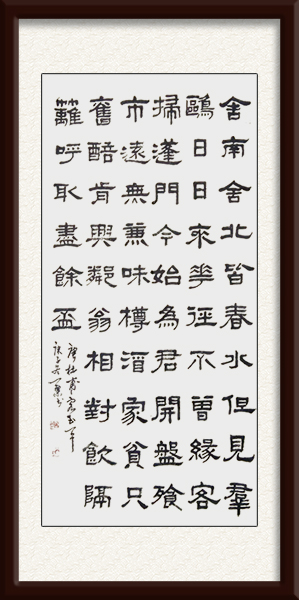 舍南舍北皆春水但見羣
鷗日日來華徑不曾緣客
掃蓬門今始為君開盤飧
市遠無兼味樽酒家貧只
舊醅肯與鄰翁相對飲隔
籬呼取盡餘盃
唐杜甫客至